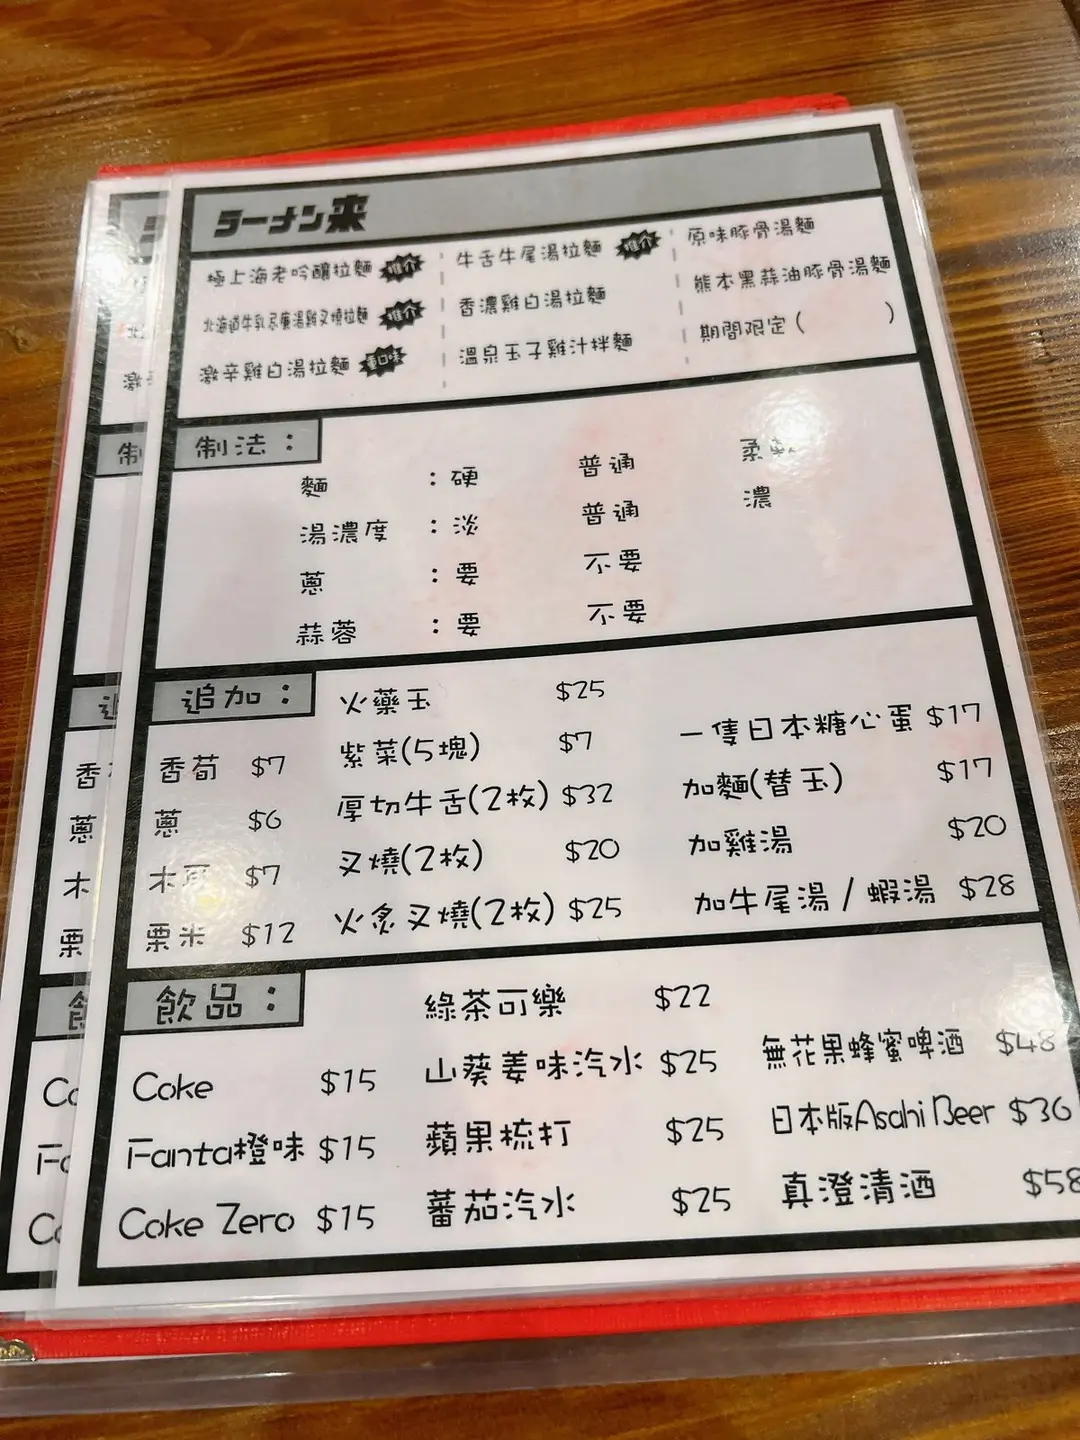 ラーメン来
極上海老吟釀拉麵 推介
北海道牛乳忌廉湯雞叉燒拉麵 推介
激辛雞白湯拉麵 重口味
牛舌牛尾湯拉麵 推介
香濃雞白湯拉麵
溫泉玉子雞汁拌麵
原味豚骨湯麵
熊本黑蒜油豚骨湯麵
期間限定( )
制法：
麵 ：硬 普通 柔軟
湯濃度 ：淡 普通 濃
蔥 ：要 不要
蒜蓉 ：要 不要
追加：
香荀 $7
蔥 $6
木耳 $7
粟米 $12
火藥玉 $25
紫菜(5塊) $7
厚切牛舌(2枚) $32
叉燒(2枚) $20
火炙叉燒(2枚) $25
一隻日本糖心蛋 $17
加麵(替玉) $17
加雞湯 $20
加牛尾湯/蝦湯 $28
飲品：
Coke $15
Fanta橙味 $15
Coke Zero $15
綠茶可樂 $22
山葵姜味汽水 $25
蘋果梳打 $25
蕃茄汽水 $25
無花果蜂蜜啤酒 $48
日本版Asahi Beer $36
真澄清酒 $58